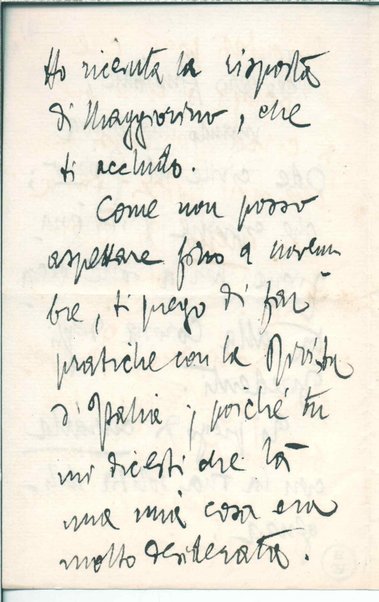 Ho ricevuta la risposta
di Maggiorino, che
ti accludo.
Come non posso
aspettare fino a novem
bre, ti prego di far
pratiche con la Rivista
d'Italia; poiché tu
mi dicesti che là
una mia cosa era
molto desiderata.